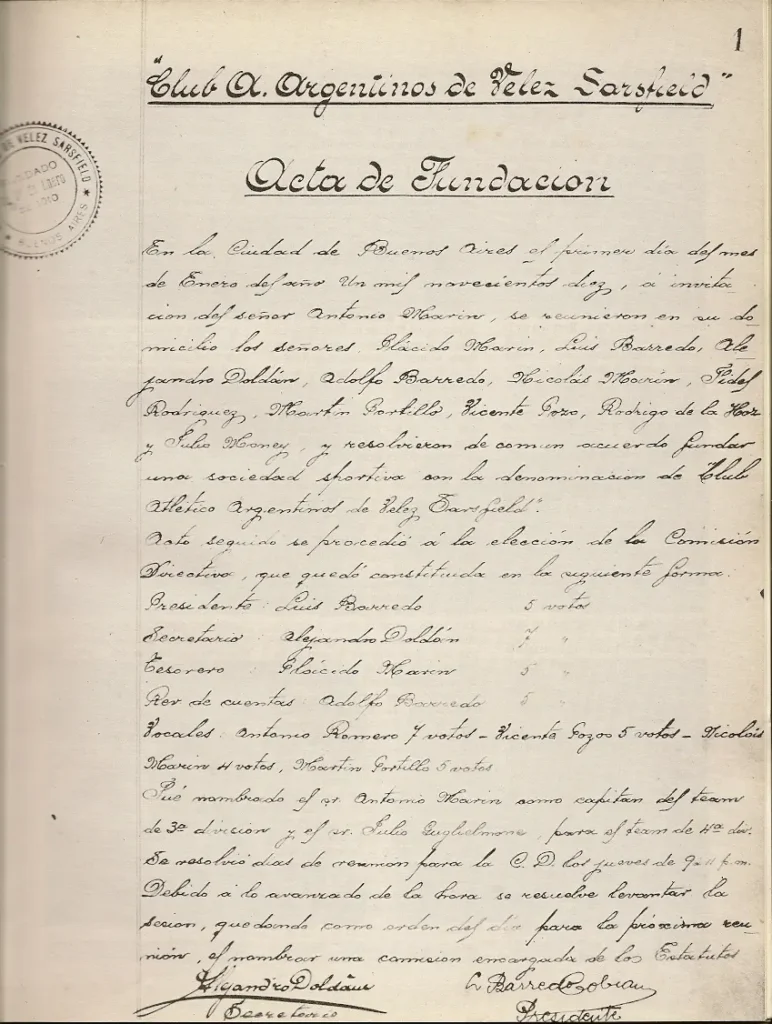 1
"Club A. Argentinos de Velez Sarsfield"
DE VELEZ SARSFIELD
BUENOS AIRES
Acta de Fundacion
En la Ciudad de Buenos Aires el primer día del mes
de Enero del año Un mil novecientos diez, á invita
cion del señor Antonio Marin, se reunieron en su do
micilio los señores Plácido Marin, Luis Barredo, Ale
jandro Doldán, Adolfo Barredo, Nicolás Marín, Fidel
Rodriguez, Martin Portillo, Vicente Pozo, Rodrigo de la Hoz
y Julio Money, y resolvieron de comun acuerdo fundar
una sociedad sportiva con la denominacion de Club
Atlético Argentinos de Velez Sarsfield".
Acto seguido se procedió á la elección de la Comisión
Directiva, que quedó constituida en la siguiente forma:
Presidente: Luis Barredo 5 votos
Secretario: Alejandro Doldán 7 "
Tesorero: Plácido Marin 5 "
Rev de cuentas: Adolfo Barredo 5 "
Vocales: Antonio Romero 7 votos - Vicente Pozos 5 votos - Nicolás
Marin 4 votos, Martin Portillo 5 votos
Fué nombrado el sr. Antonio Marin como capitan del team
de 3ª división y el sr. Julio Guglielmone, para el team de 4ª div.
Se resolvió dias de reunión para la C. D. los jueves de 9 a 11 p.m.
Debido á lo avanzado de la hora se resuelve levantar la
sesion, quedando como orden del día para la próxima reu-
nión, el nombrar una comision encargada de los Estatutos
Alejandro Doldán L Barredo Cobian
Secretario Presidente